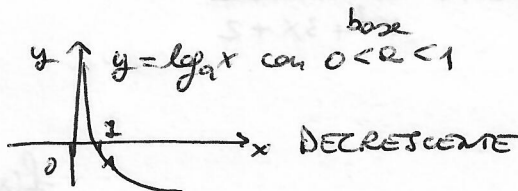 base
y y = logₐx con 0<a<1
1
0 x DECRESCENTE